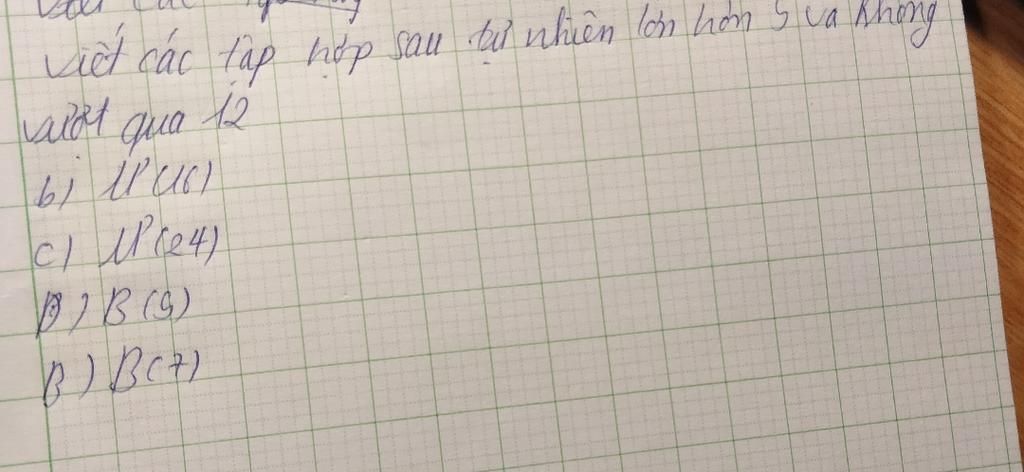 viết các tập hợp sau tự nhiên lớn hơn 5 và không
vượt qua 12
b) Ư(16)
c) Ư(24)
D) B(9)
B) B(7)